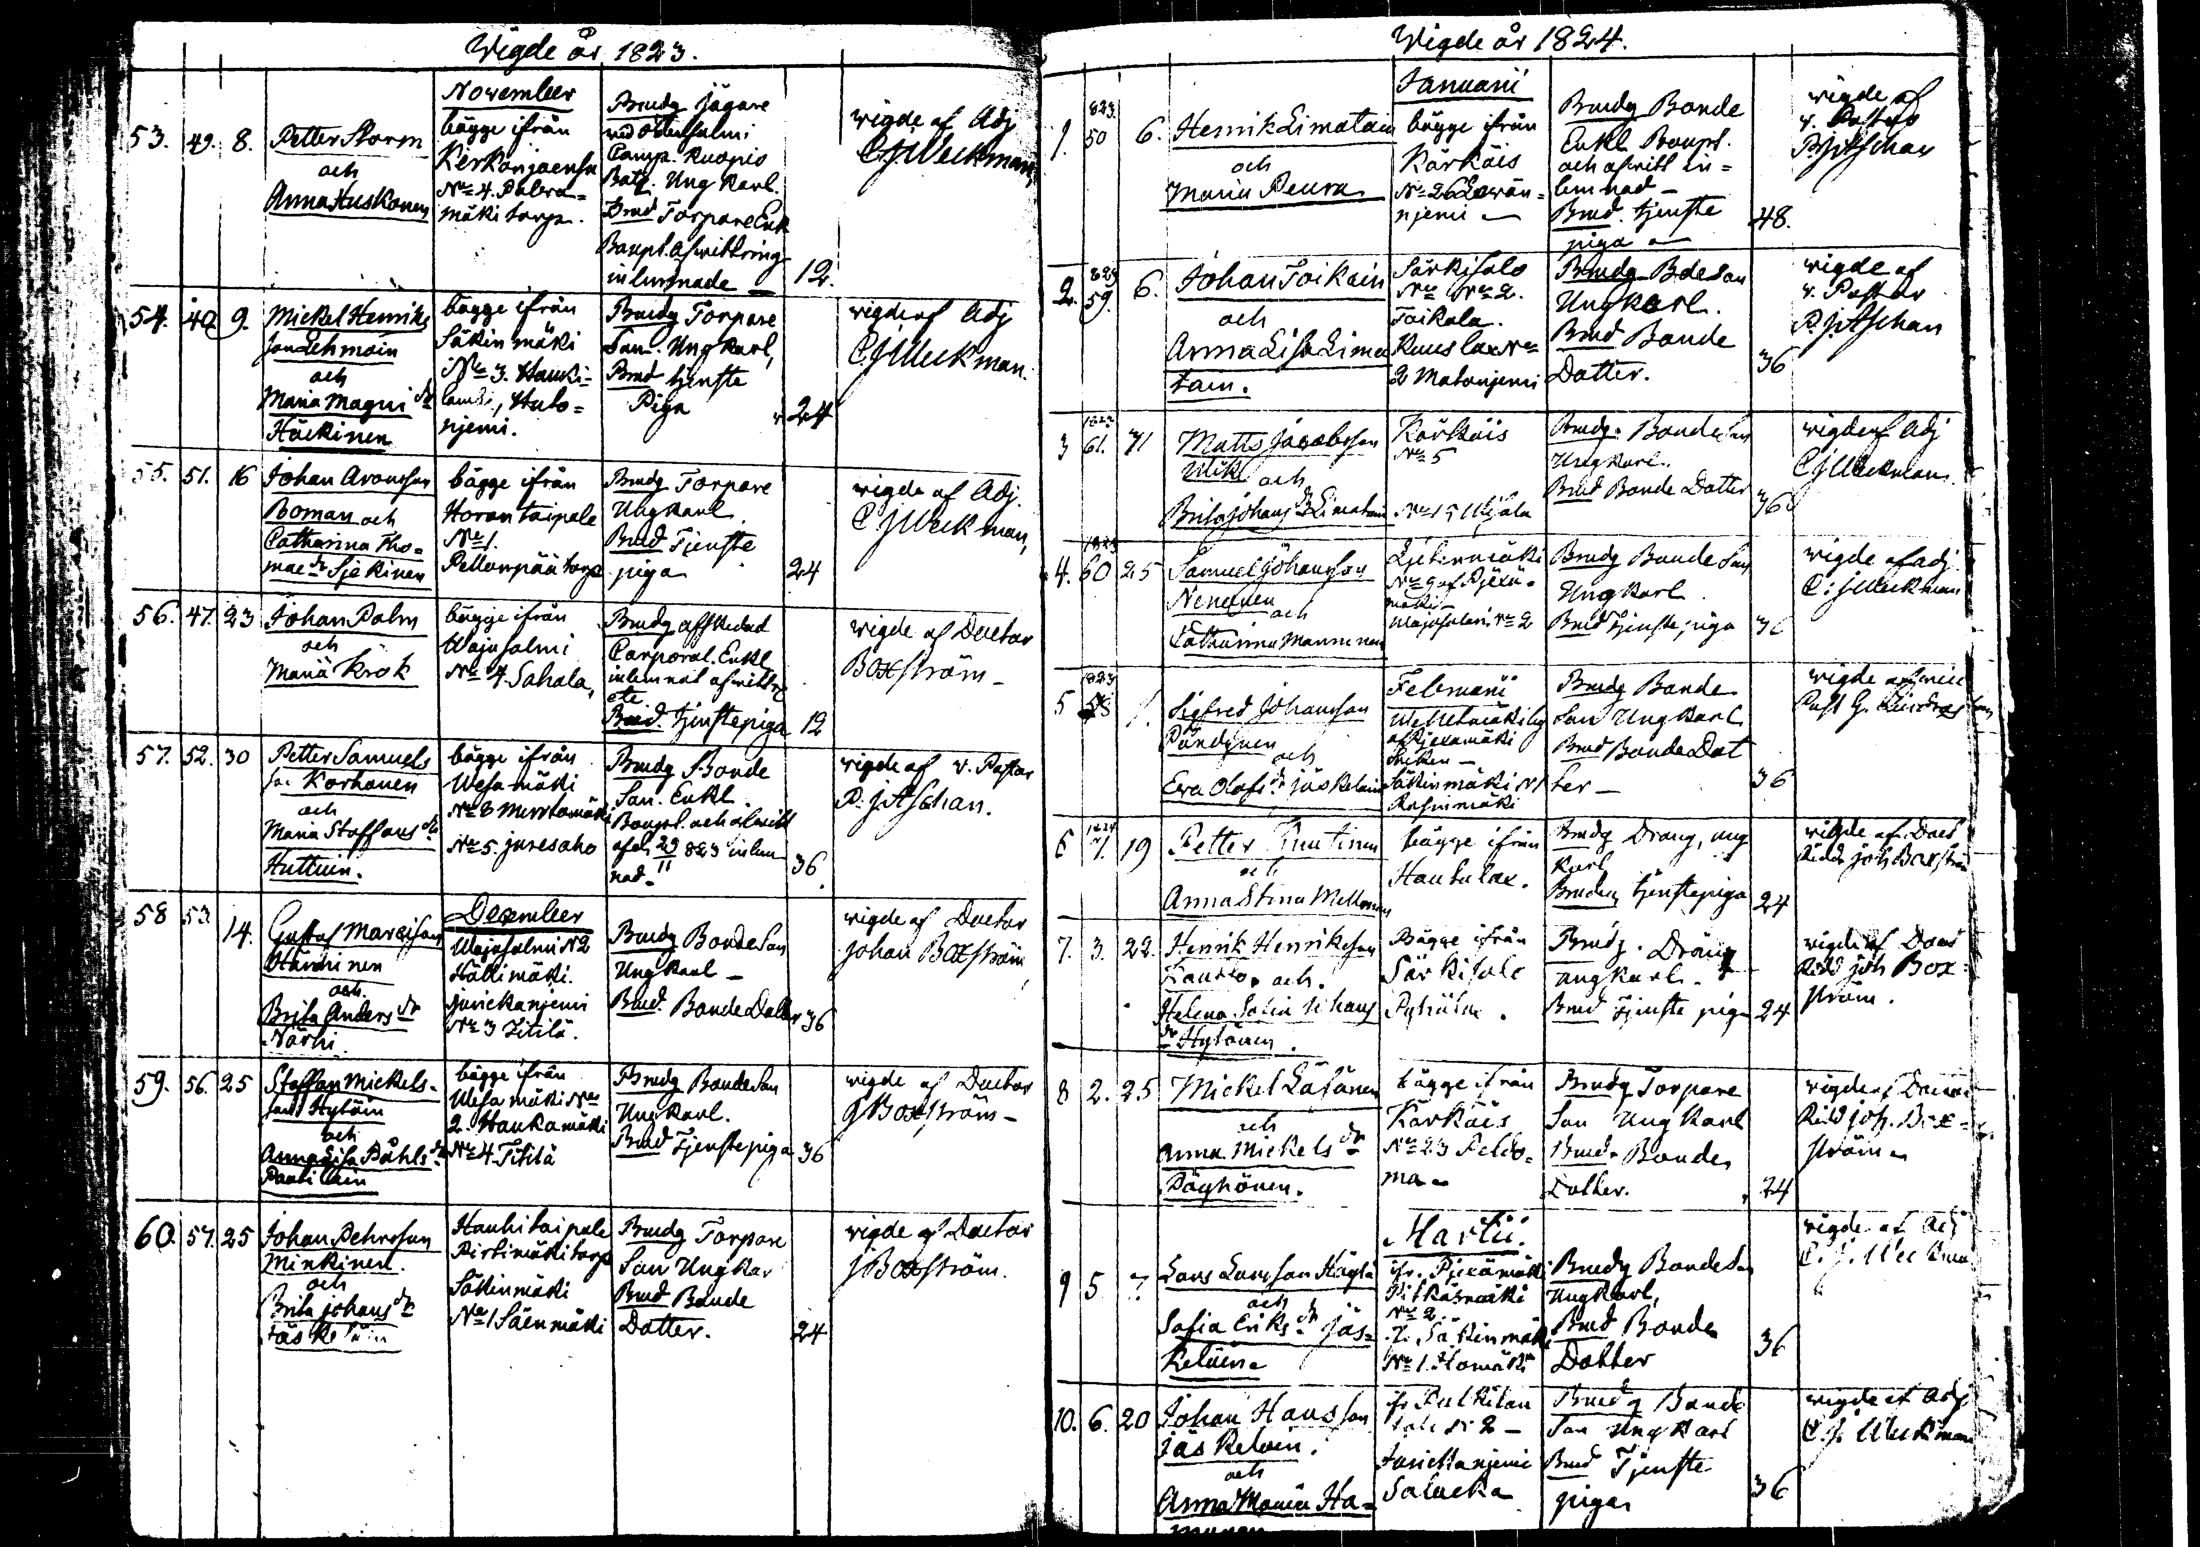 Wigde år 1823.
November
53. 49. 8. Petter Storm
och
Anna Huskonen
bägge ifrån
Kerkonjoensu
No 4.
mäki torp.
Brudg Jägare
vid
Comp. Kuopio
Batg. Ungkarl.
Brud Torpare Enk
Boupt. afwittring
inlemnade
12.
wigde af Adj
C J Weckman,
54. 49. 9. Mickel Henriks
son Lehmoin
och
Maria Magni dr
Häckinen
bägge ifrån
Säkinmäki
No 3. Hauki=
lambi, Halo=
njemi.
Brudg Torpare
Son. Ungkarl,
Brud tjenste
Piga
24
wigde af Adj
C J Weckman.
55. 51. 16 Johan Aronsson
Roman och
Catharina Tho=
mae dr Sjekinen
bägge ifrån
Horontaipale
No 1.
Pellonpää torp
Brudg Torpare
Ungkarl
Brud Tjenste
piga
24
wigde af Adj.
C J Weckman,
56. 47. 23 Johan Palm
och
Maria Krok
bägge ifrån
Wajasalmi
No 4 Sahala,
Brudg affskedad
Corporal. Enkl
inlemnat afwittr
etc
Brud. tjenstepiga
12
wigde af Doctor
Boxström
57. 52. 30 Petter Samuels
so. Korhonen
och
Maria Staffans dr
Huttuin.
bägge ifrån
Wesamäki
No 8
No 5. juresaho
Brudg Bonde
Son. Enkl.
Boupt. och afwitt
af d. 29/11 823 inlem
nad
36.
wigde af v. Pastor
P. J Aschan.
December
58 53 14. Gustaf Marcisson
och
Brita Anders dr
Närhi
Wajasalmi N 2
Hällimäki.
Jurickanjemi
No 3 Titilä.
Brudg Bonde Son
Ungkarl
Brud. Bonde Dotter
36
wigde af Doctor
Johan Boxström
59. 56. 25 Staffan Mickels
son Hytöin
och
Anna Lisa Påhls dr
bägge ifrån
Wesamäki No
2. Haukamäki
No 4 Titilä
Brudg Bonde Son
Ungkarl.
Brud Tjenstepiga
36
wigde af Doctor
J Boxström
60. 57. 25 Johan Pehrsson
Minkinen.
och
Brita Johans dr
Jäskeläin
Hankitaipale
Pirtimäki torp
Säkinmäki
No 1 Säenmäki
Brudg Torpare
Son Ungkar
Brud Bonde
Dotter.
24
wigde af Doctor
J Boxström.
Wigde år 1824.
Januarii
1. 823 50 6. Henrik Limatain
och
Maria Peura
bägge ifrån
Kärkäis
No 26
njemi
Brudg Bonde
Enkl Boupt.
och afwitt in=
lemnad
Brud. tjenste
piga
48.
wigde af
v. Pastor
P. J Aschan
2. 823 59. 6. Johan Toikain
och
Anna Lisa Lima
tain.
Särkisalo
No 2.
Toikala.
Kuuslax No
2 Matonjemi
Brudg Bde Son
Ungkarl.
Brud Bonde
Dotter.
36
wigde af
v. Pastor
P. J Aschan
3 1823 61. 11 Matts Jacobsson
och
Brita Johans dr Limatain
Kärkäis
No 5
No 15
Brudg. Bonde Son
Ungkarl.
Brud Bonde Dotter
36
wigde af Adj
C J Weckman.
4. 1823 60 25 Samuel Johansson
Nenonen
och
Catharina Manninen
No 9 af Pjexä=
mäki
Wajasalmi No 2
Brudg Bonde Son
Ungkarl.
Brud tjenste piga
36
wigde af adj
C: J Weckman
Februarii
5 823 58 1. Sigfred Johansson
och
Eva Olofs dr Jäskelain
af Pjexämäki
Socken
Säkinmäki N 1
Brudg Bonde
Son Ungkarl
Brud Bonde Dot
ter
36
wigde af
Past G.
6 1824 1. 19 Petter Knutinen
och
Anna Stina Mellonen
bägge ifrån
Hautulax.
Brudg Dräng, ung
karl
Bruden tjenstepiga
24
wigde af Doct
Ridd Joh Boxström
7. 3. 22. Henrik Henriksson
och
Helena Sofia Johans
dr Hytönen.
Bägge ifrån
Särkisalo
Brudg. Dräng
ungkarl.
Brud tjenste piga
24
wigde af Doct
Ridd Joh Box=
ström.
8 2. 25 Mickel Läsänen
och
Anna Mickels dr
Pöyhönen.
bägge ifrån
Kärkäis
No 23 Peldo=
ma
Brudg Torpare
Son Ungkarl
Brud. Bonde
Dotter.
24
wigde af Doctor
Ridd Joh. Box=
ström
Martii.
9 5 7 Lars Larsson
och
Sofia Eriks dr Jäs=
keläin
ifr. Pjexämäki
Pitkäsmäki
No 2
Säkinmäki
No 1. Homäki
Brudg Bonde Son
Ungkarl,
Brud Bonde
Dotter
36
wigde af Adj
C. J. Weckman
10. 6. 20 Johan Hansson
Jäskelain.
och
Anna Maria Ha=
N 2
Jurickanjemi
Salacka
Brudg Bonde
Son Ungkarl
Brud Tjenste
piga
36
wigde af Adj
C. J. Weckman